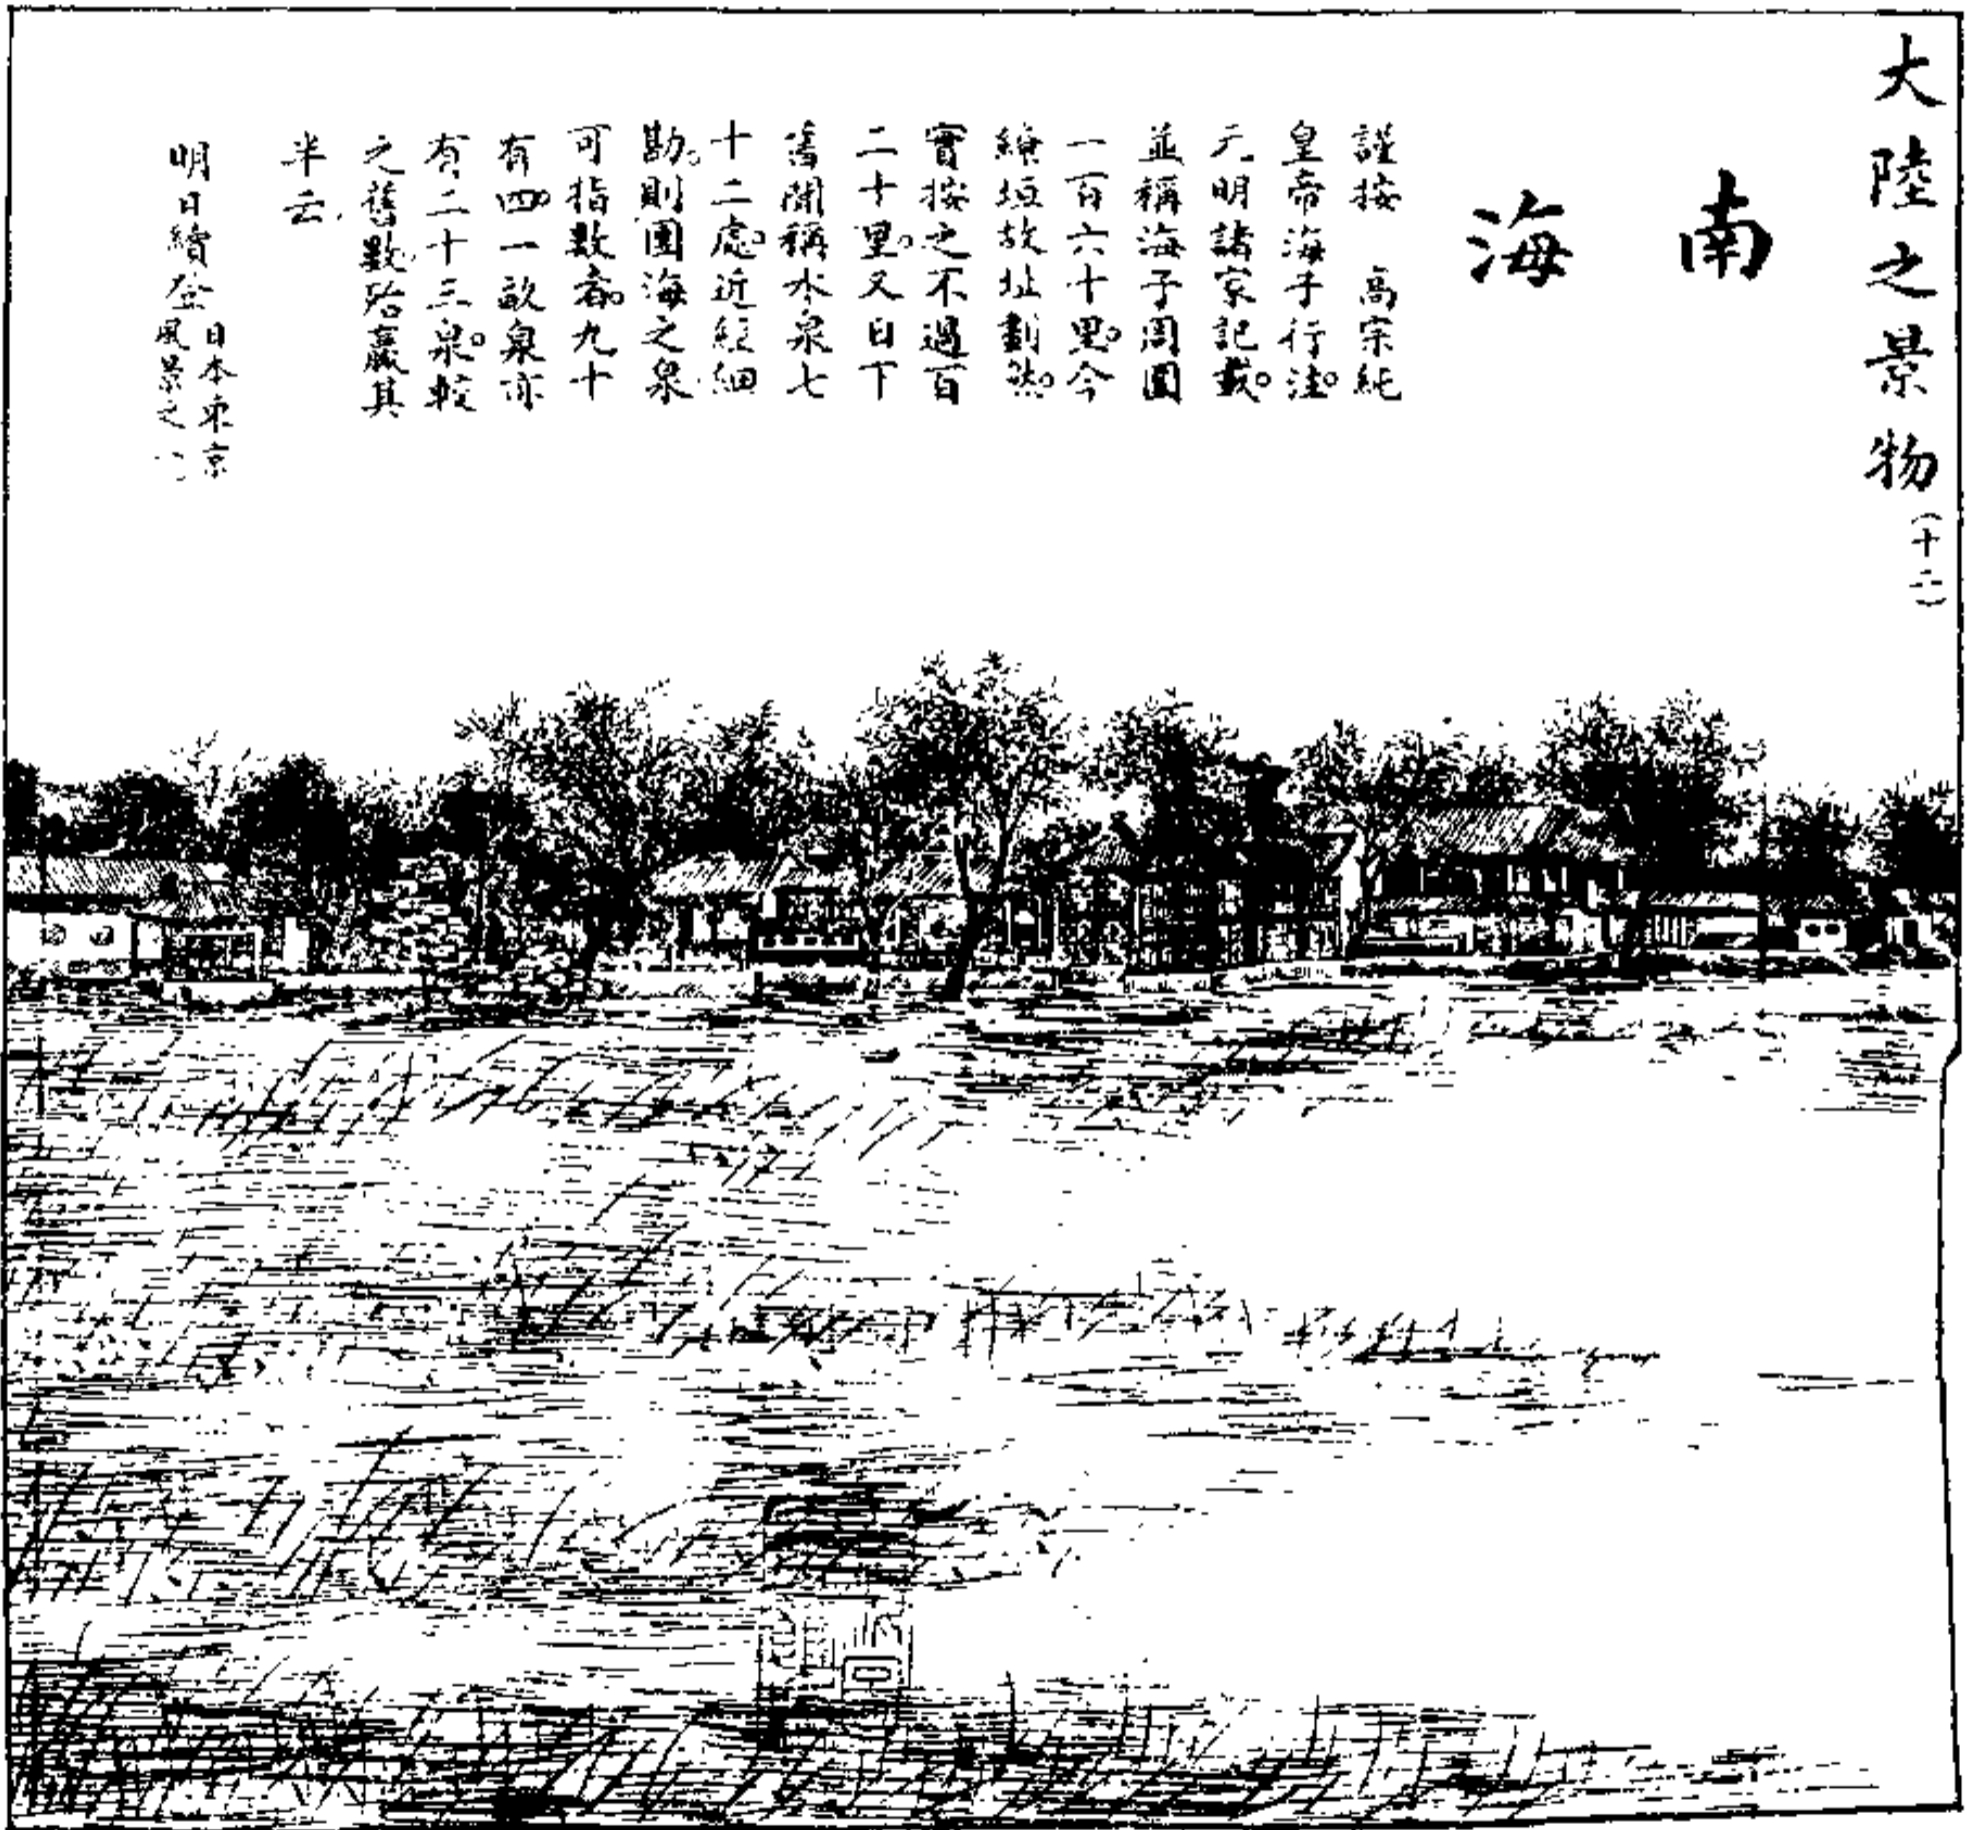 大陸之景物(十二)
南海
謹按　高宗純
皇帝海子行注。
元明諸家記載。
並稱海子周圍
一百六十里。今
繚垣故址劃然。
實按之不過百
二十里。又日下
舊聞稱水泉七
十二處。近經細
勘。則團海之泉
可指數者。九十
有四。一畝泉亦
有二十三泉。較
之舊數殆贏其
半云
明日續登
日本東京
風景之